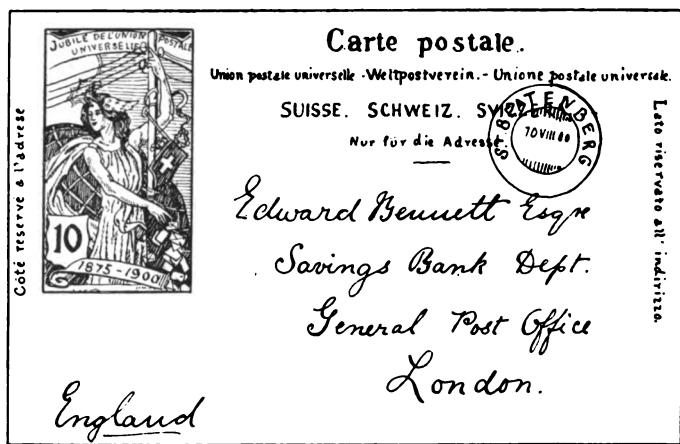 JUBILÉ DE L'UNION POSTALE
UNIVERSELLE
10
1875-1900
Carte postale.
Union postale universelle - Weltpostverein. - Unione postale universale.
SUISSE. SCHWEIZ. SVIZZERA.
Nur für die Adresse.
S. BEATENBERG
10 VIII 00
Côté reservé a l'adrese
Lato riservato all' indirizzo.
Edward Bennett Esqre
Savings Bank Dept.
General Post Office
London.
England